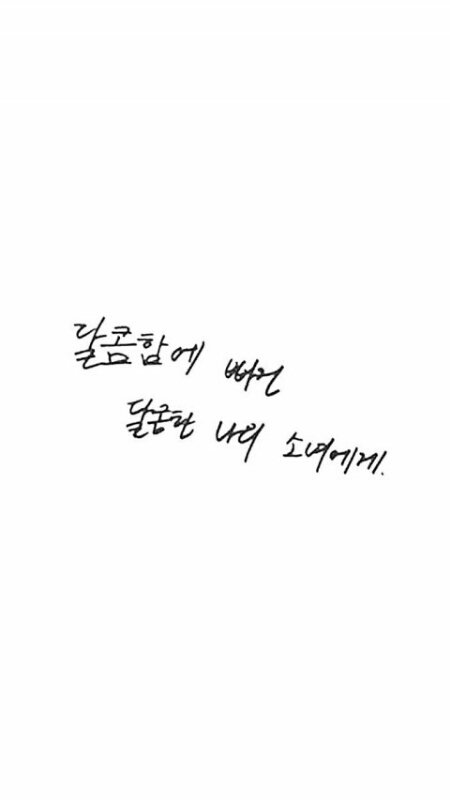 달콤함에 빠진
달콤한 나의 소녀에게.